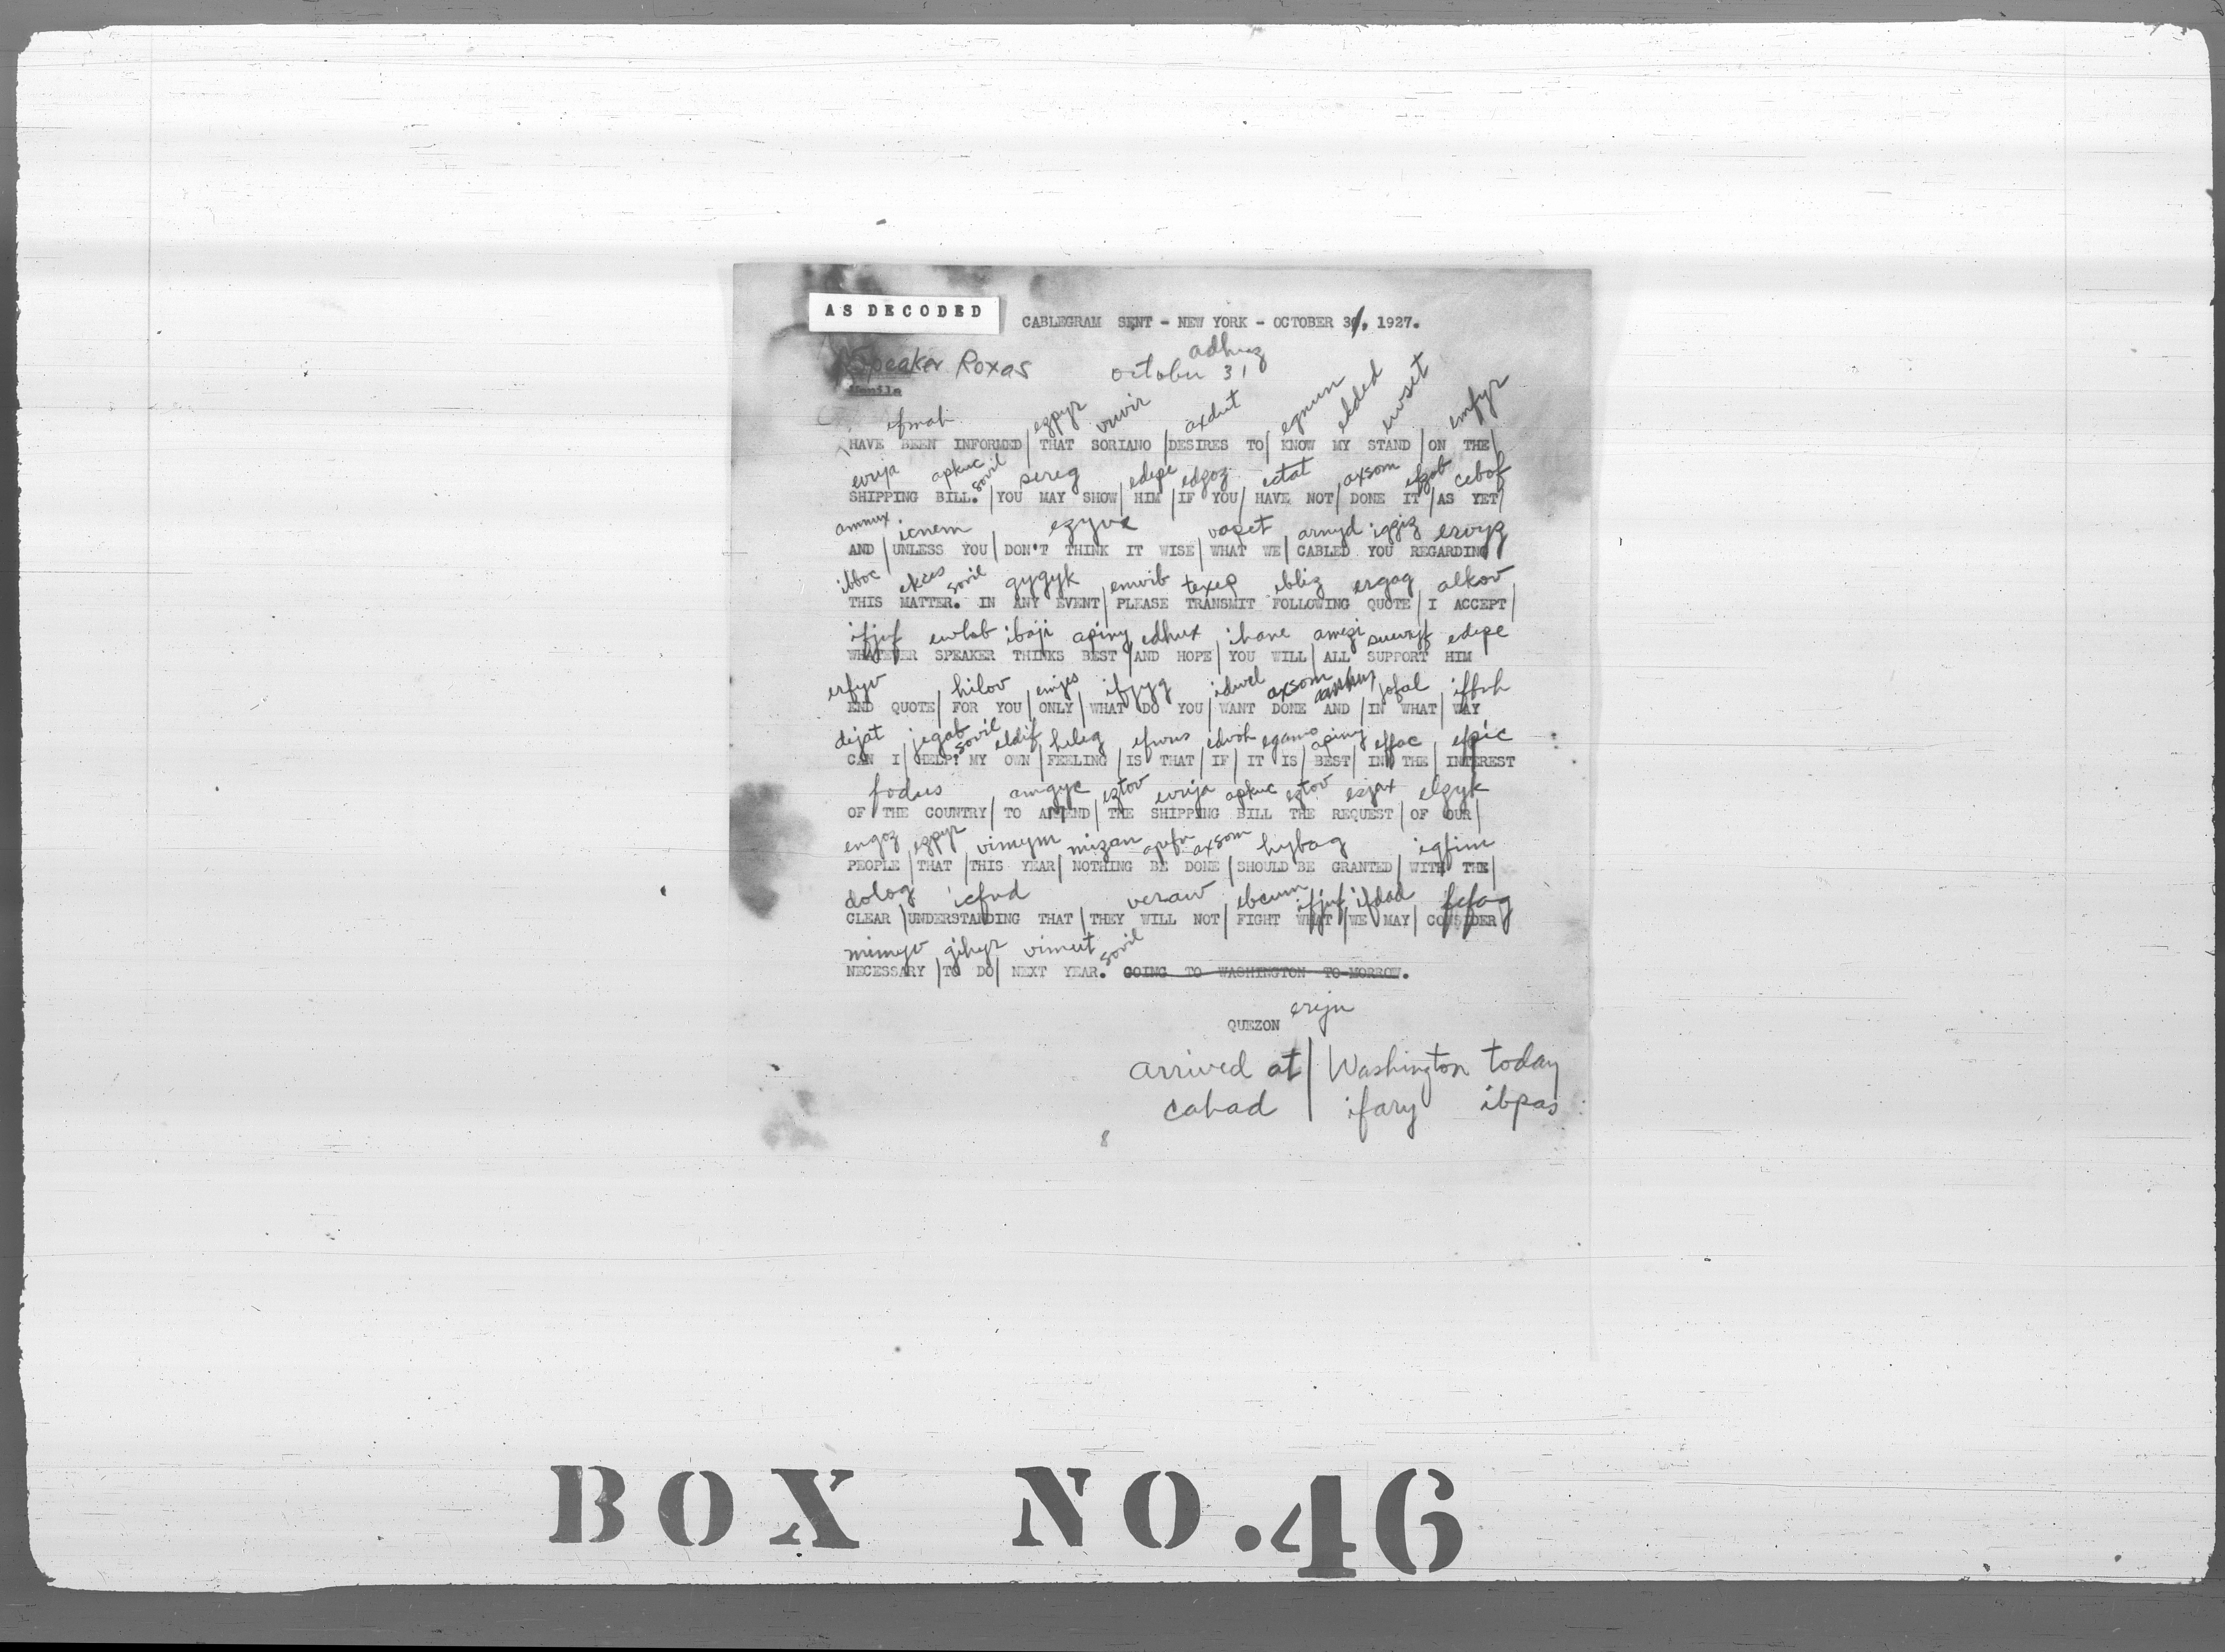 AS DECODED
CABLEGRAM SENT - NEW YORK - OCTOBER 31, 1927.
adhuz
Speaker Roxas october 31
Manila
efmah ezpyr axdut egnum elded ewset emfyr
HAVE BEEN INFORMED| THAT SORIANO |DESIRES TO| KNOW MY STAND |ON THE|
evrja apkuc sovil sereg edepe edgoz ictat axsom efgob cebof
SHIPPING BILL. |YOU MAY SHOW| HIM |IF YOU| HAVE NOT| DONE IT |AS YET|
ammux icnem ezyve arnyd iggiz
AND |UNLESS YOU| DON'T THINK IT WISE| WHAT WE| CABLED YOU REGARDING
ibboc ekces sovil gygyk emwib texep ibliz ergag alkov
THIS MATTER. IN ANY EVENT| PLEASE TRANSMIT FOLLOWING QUOTE| I ACCEPT|
ifjuf ewlab ibaji apiny edhux ihane amezi edepe
WHATEVER SPEAKER THINKS BEST |AND HOPE| YOU WILL| ALL SUPPORT HIM
erfyv hilov emjes ifjyg idwel axsom jofal iffuh
END QUOTE| FOR YOU |ONLY| WHAT DO YOU| WANT DONE AND |IN WHAT| WAY
dejat jegab sovil eldif heleg efwus edvoh egamo apiny effac efpic
CAN I |HELP? MY OWN |FEELING |IS THAT| IF| IT IS| BEST| IN THE| INTEREST
fodus amgyc eztov evrja apkuc eztov esjax elzyk
OF THE COUNTRY| TO AMEND| THE SHIPPING BILL THE REQUEST| OF OUR|
engoz ezpyr vimym mizan axsom hybag igfim
PEOPLE |THAT |THIS YEAR| NOTHING BE DONE |SHOULD BE GRANTED| WITH THE|
dolog icfud veraw ebcum ifjuf ifdad fefag
CLEAR |UNDERSTANDING THAT |THEY WILL NOT| FIGHT WHAT |WE MAY| CONSIDER
mimyv gihyr vimut sovil
NECESSARY |TO DO| NEXT YEAR. GOING TO WASHINGTON TO-MORROW.
QUEZON erijn
arrived at | Washington today
cahad | ifary ibpas
8
BOX NO. 46